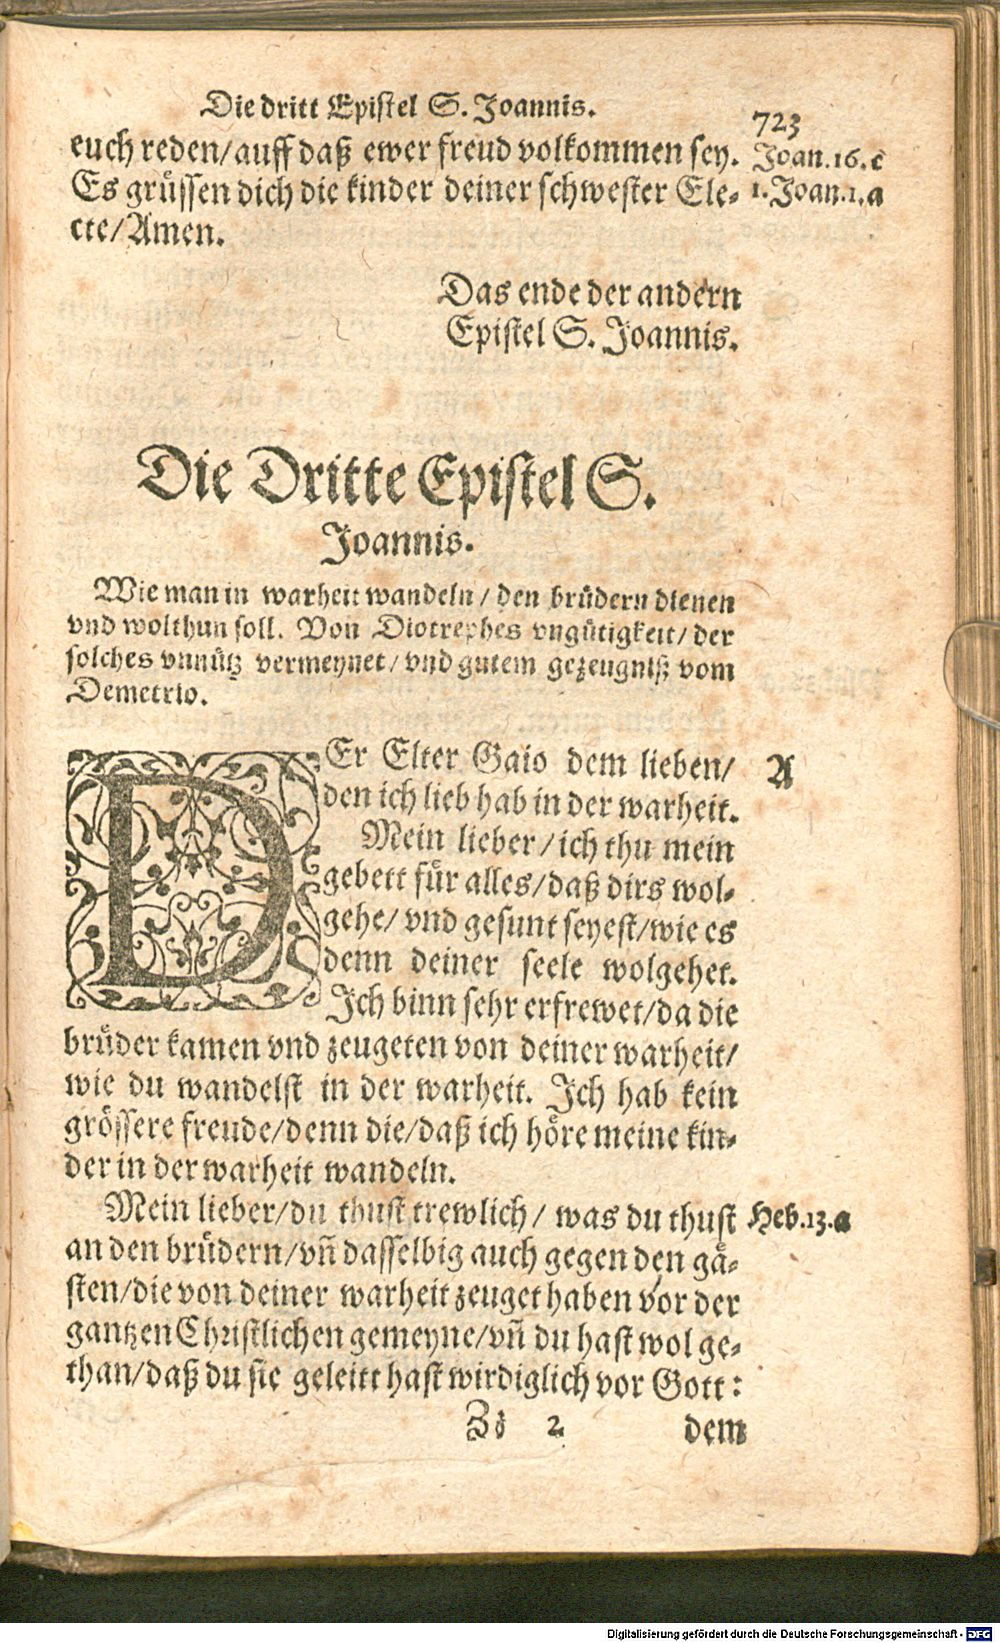 Die dritt Epistel S. Joannis.
723
euch reden/auff daß ewer freud volkommen sey.
Joan.16.c
Es grüssen dich die kinder deiner schwester Ele-
1.Joan.1.a
cte/Amen.
Das ende der andern
Epistel S. Joannis.
Die Dritte Epistel S.
Joannis.
Wie man in warheit wandeln/ den brüdern dienen
vnd wolthun soll. Von Diotrephes vngütigkeit/ der
solches vnnütz vermeynet/ vnd gutem gezeugniß vom
Demetrio.
DEr Elter Gaio dem lieben/
A
den ich lieb hab in der warheit.
Mein lieber/ich thu mein
gebett für alles/daß dirs wol-
gehe/ vnd gesunt seyest/wie es
denn deiner seele wolgehet.
Ich binn sehr erfrewet/da die
brüder kamen vnd zeugeten von deiner warheit/
wie du wandelst in der warheit. Ich hab kein
grössere freude/denn die/daß ich höre meine kin-
der in der warheit wandeln.
Mein lieber/du thust trewlich/ was du thust
Heb.13.a
an den brüdern/vñ dasselbig auch gegen den gä-
sten/die von deiner warheit zeuget haben vor der
gantzen Christlichen gemeyne/vñ du hast wol ge-
than/daß du sie geleitt hast wirdiglich vor Gott:
Zz 2
dem
Digitalisierung gefördert durch die Deutsche Forschungsgemeinschaft - DFG